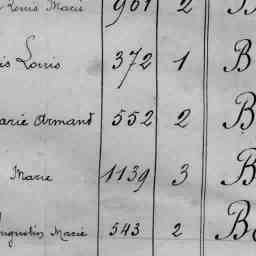 Louis Marie 901 2 B
is Louis 372 1 B
arie Armand 552 2 B
Marie 1139 3 B
Augustin Marie 543 2 Bo